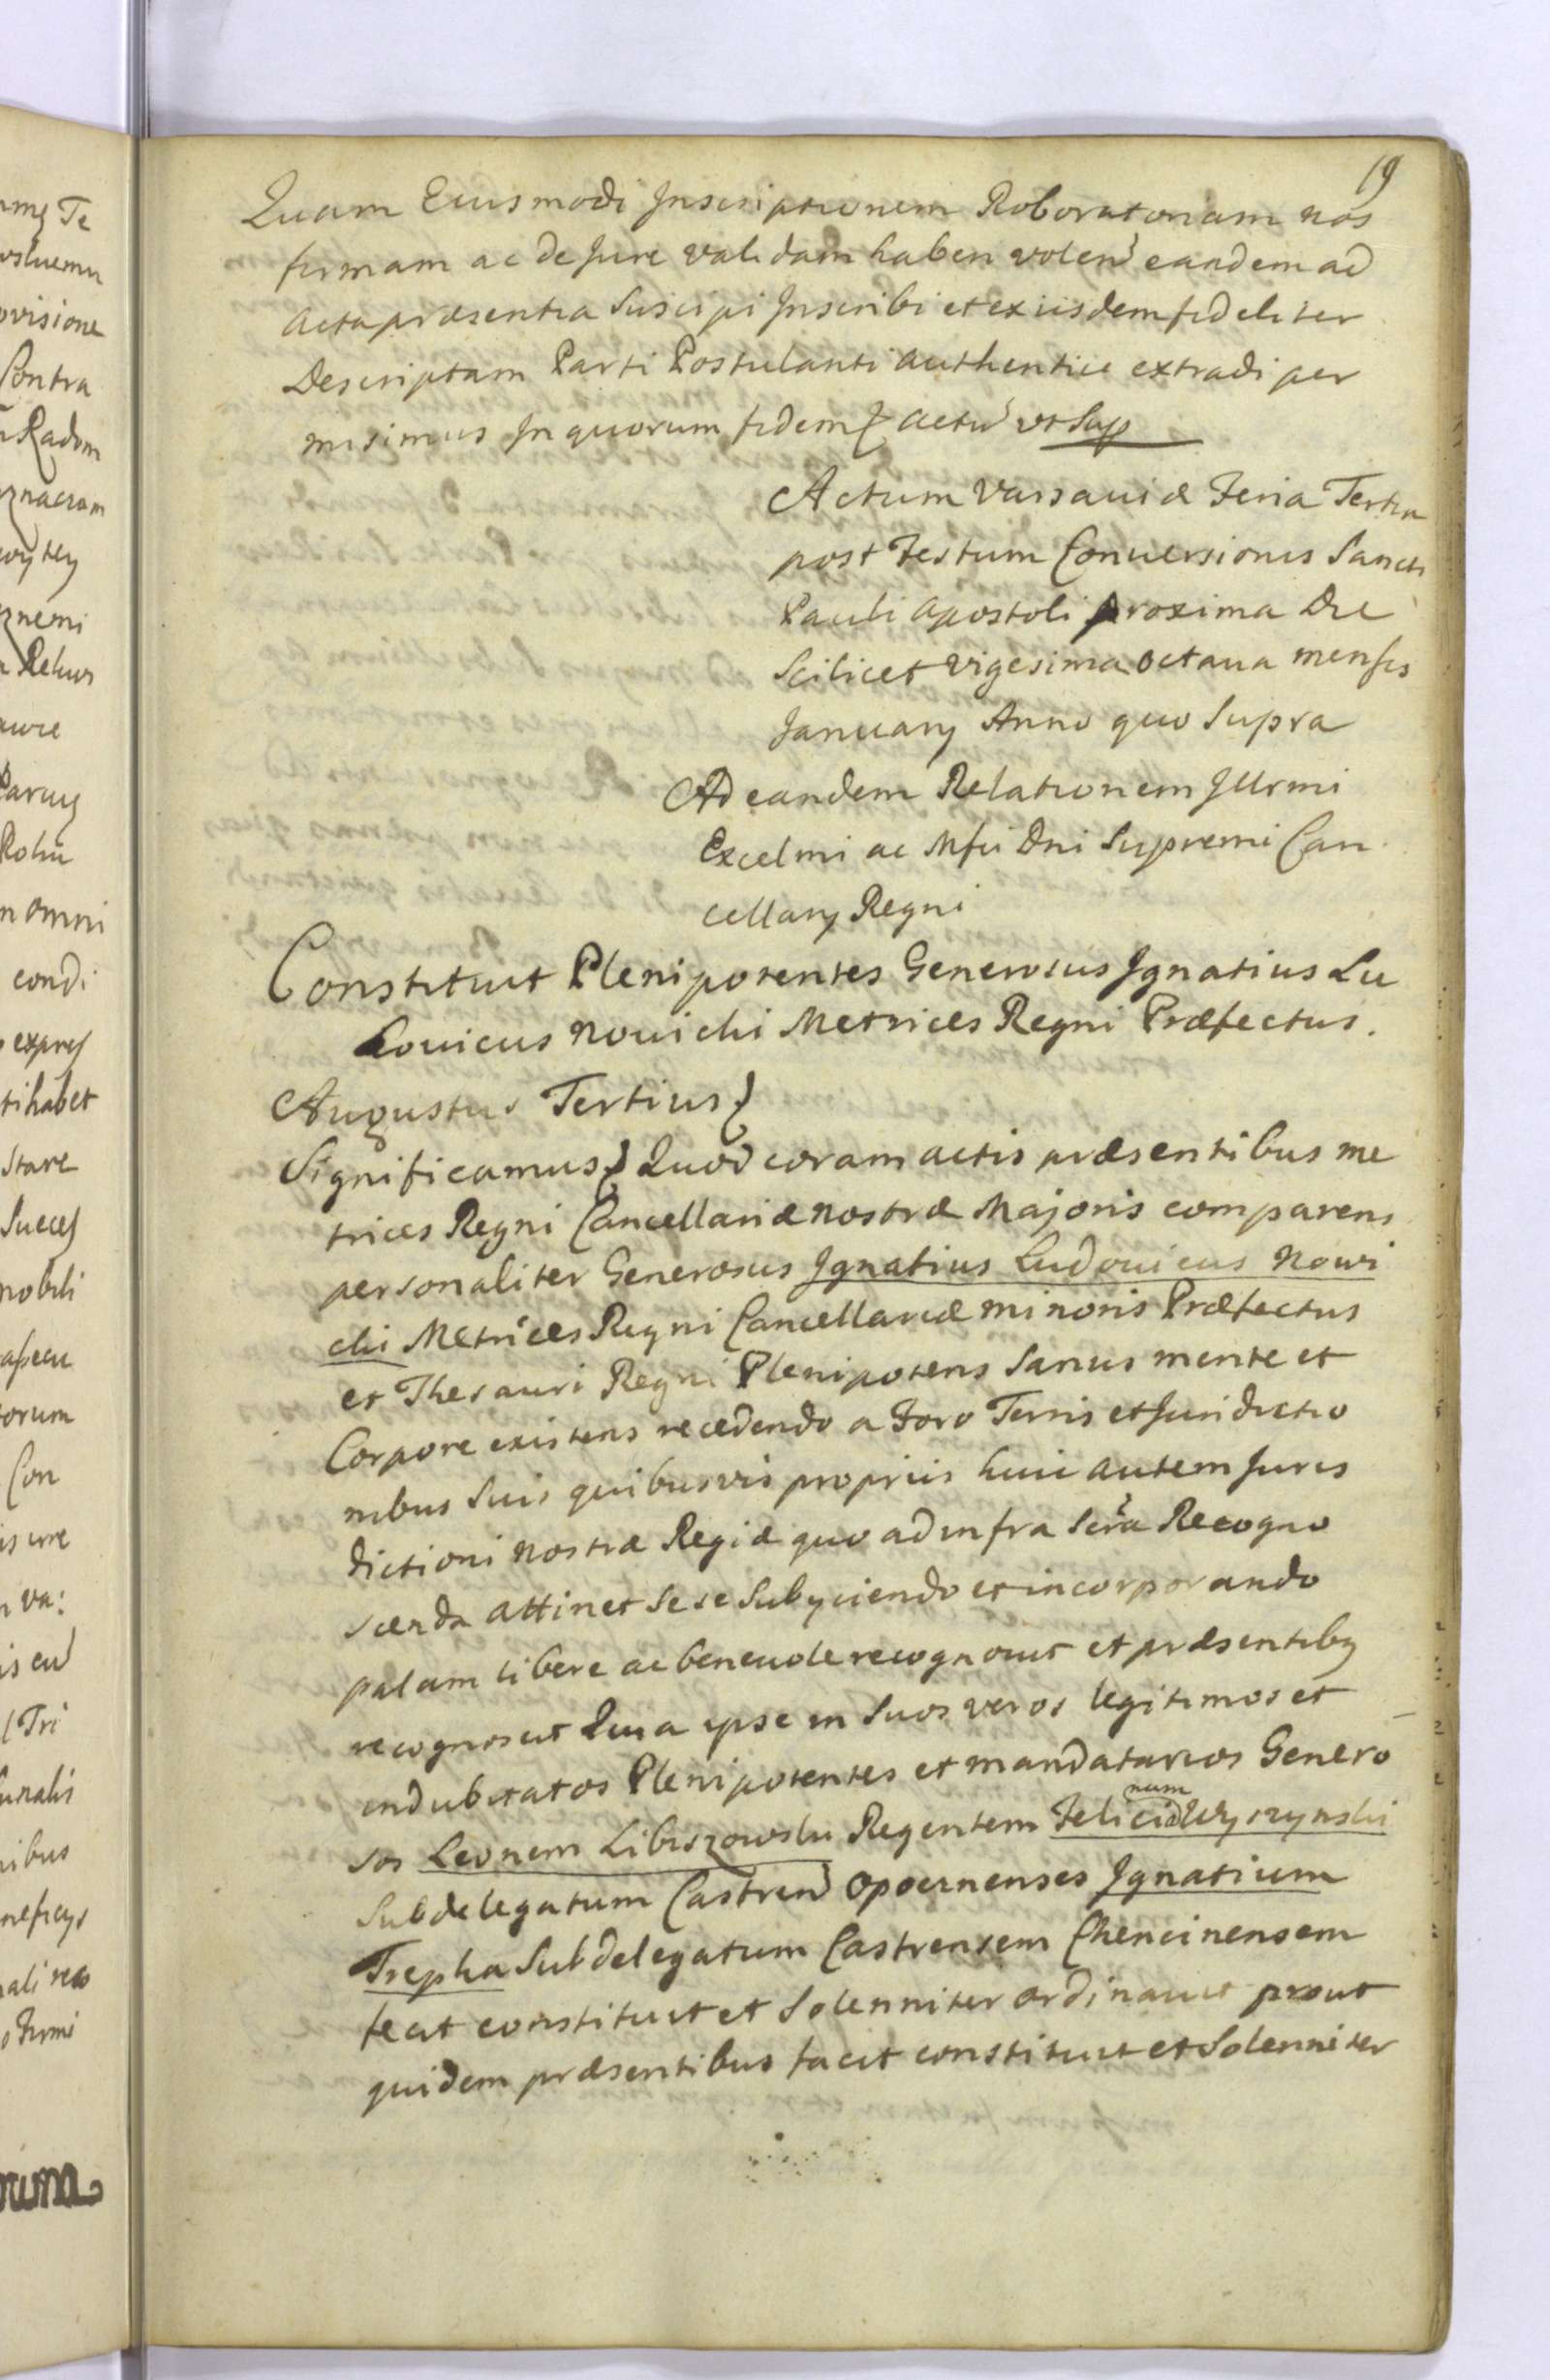 19
Quam Eiusmodi Inscriptionem Roboratoriam nos
firmam ac de Jure validam haberi volen eandem ad
acta præsentia Suscipi Inscribi et ex iisdem fideliter
Descriptam Parti Postulanti authentice extradi per
misimus In quorum fidem Actu vt Sup
Actum Varsaviæ Feria Tertia
post Festum Conuersionis Sancti
Pauli Apostoli proxima Die
Scilicet vigesima octaua mensis
January Anno quo Supra
Ad eandem Relationem Illrmi
Excelmi ac Mfci Dni Supremi Can
cellary Regni
Constituit Plenipotentes Generosus Ignatius Lu
douicus Nouichi Metrices Regni Præfectus.
Augustus Tertius
Significamus Quod coram actis præsentibus me
trices Regni Cancellariæ nostræ Majoris comparens
personaliter Generosus Ignatius Ludouicus Nowi
chi Metrices Regni Cancellariæ minoris Præfectus
et Thesauri Regni Plenipotens Sanus mente et
Corpore existens recedendo a Foro Terris et Juridictio
nibus Suis quibusvis propriis huic autem Juris
dictioni Nostræ Regiæ quo ad infra Scra Recogno
scenda attinet Sese Subyciendo et incorporando
palam libere ac beneuole recognouit et præsentiby
recognoscit Quia ipse in Suos veros legitimos et
indubitatos Plenipotentes et mandatarios Genero
sos Leonem Libiszowski Regentem Felicianum Wyszynski
Subdelegatum Castren Opocznenses Ignatium
Trepka Subdelegatum Castrensem Chencinensem
fecit constituit et Solenniter ordinauit prout
quidem præsentibus facit constituit et Solenniter